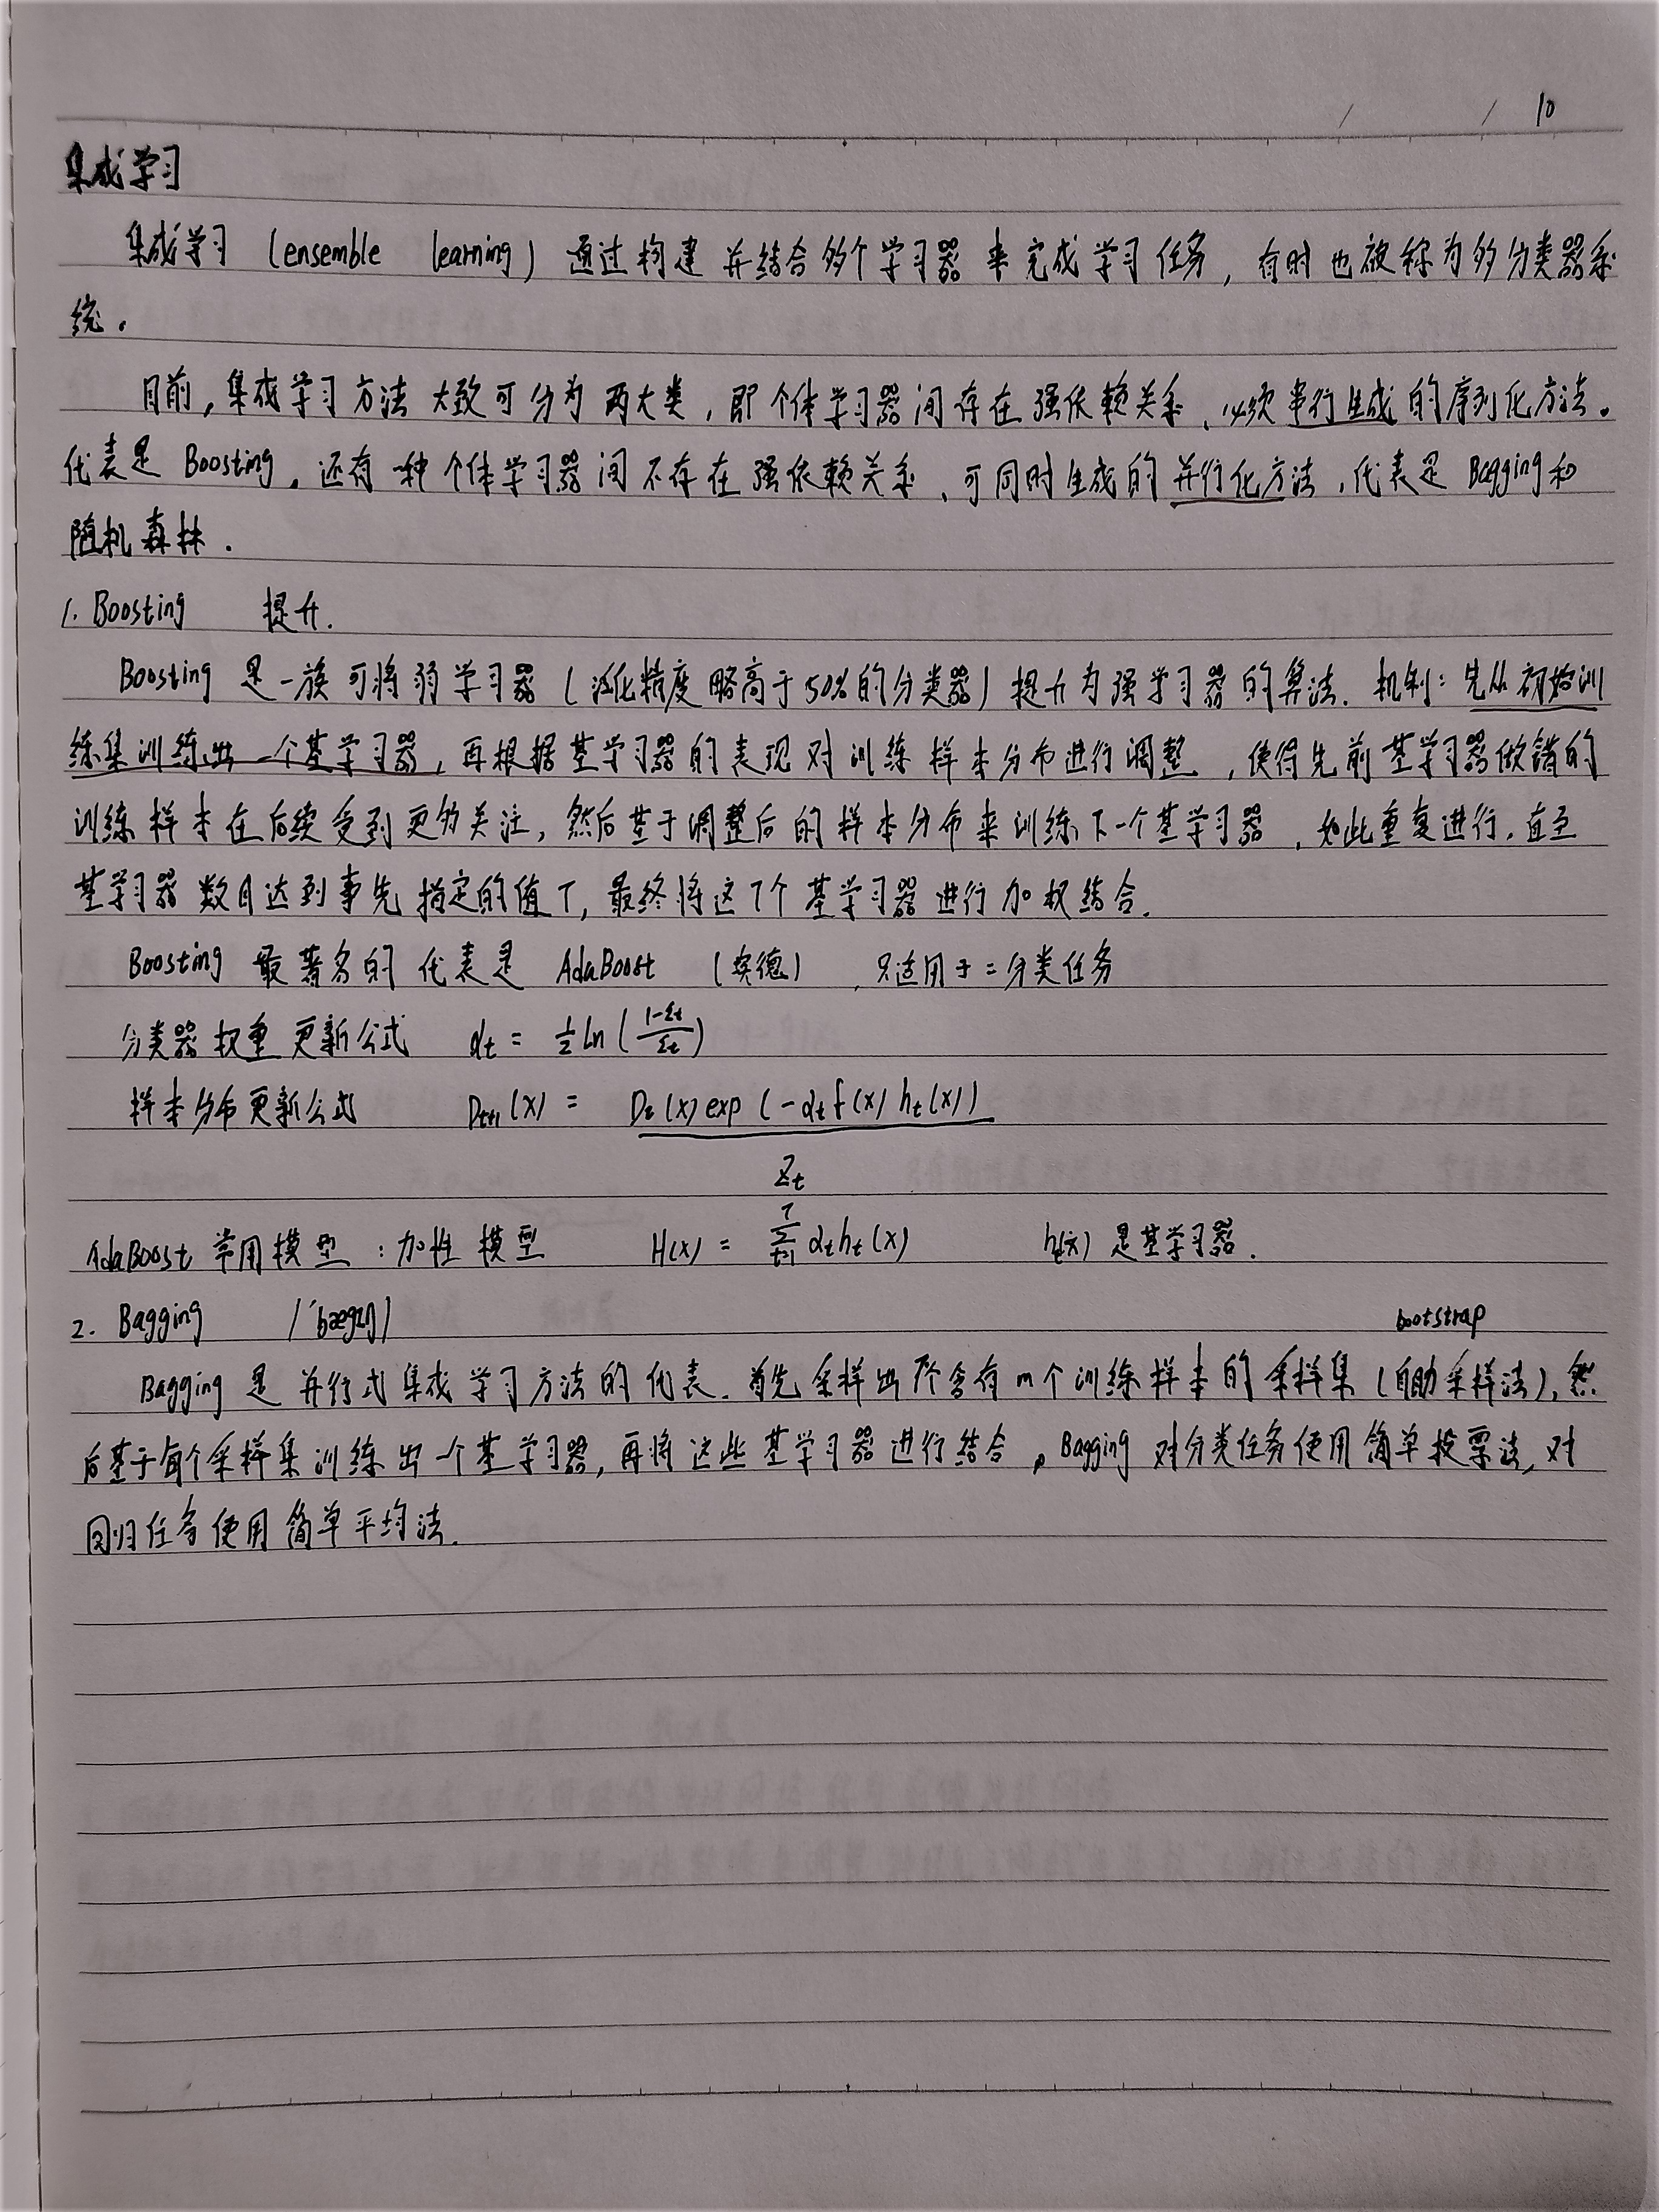 / / 10
集成学习
集成学习 (ensemble learning) 通过构建并结合多个学习器来完成学习任务,有时也被称为多分类器系
统。
目前,集成学习方法大致可分为两大类,即个体学习器间存在强依赖关系、必须串行生成的序列化方法。
代表是 Boosting。还有一种个体学习器间不存在强依赖关系、可同时生成的并行化方法,代表是 Bagging和
随机森林.
1. Boosting 提升.
Boosting 是一族可将弱学习器 (泛化精度略高于50%的分类器) 提升为强学习器的算法. 机制: 先从初始训
练集训练出一个基学习器,再根据基学习器的表现对训练样本分布进行调整,使得先前基学习器做错的
训练样本在后续受到更多关注,然后基于调整后的样本分布来训练下一个基学习器,如此重复进行,直至
基学习器数目达到事先指定的值T,最终将这T个基学习器进行加权结合.
Boosting 最著名的代表是 AdaBoost (埃德) ,只适用于二分类任务
分类器权重更新公式 αt = 1/2 ln ( (1-εt)/εt )
样本分布更新公式 Dt+1(x) = Dt(x) exp (-αt f(x) ht(x))
Zt
AdaBoost 常用模型:加性模型 H(x) = Σ_{t=1}^{T} αt ht(x) ht(x) 是基学习器.
2. Bagging /ˈbægɪŋ/ bootstrap
Bagging 是并行式集成学习方法的代表. 首先采样出T个含有m个训练样本的采样集 (自助采样法), 然
后基于每个采样集训练出一个基学习器,再将这些基学习器进行结合。Bagging 对分类任务使用简单投票法,对
回归任务使用简单平均法.